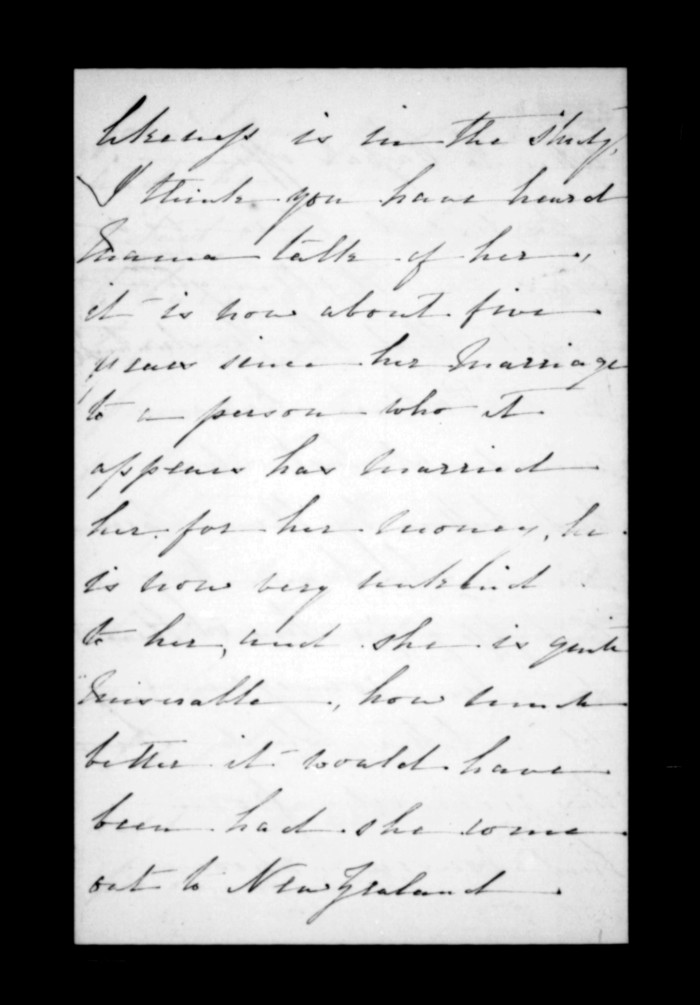 likeness is in the study,
I think you have heard
Mama talk of her,
it is now about five
years since her marriage
to a person who it
appears has married
her for her money, he
is now very unkind
to her, and she is quite
miserable, how much
better it would have
been had she come
out to New Zealand.